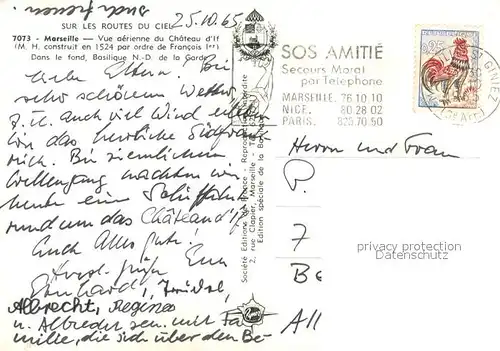 such freuen.
25.10.65
SUR LES ROUTES DU CIEL
7073 - Marseille — Vue aérienne du Château d'If
(M. H. construit en 1524 par ordre de François Ier)
Dans le fond, Basilique N.-D. de la Garde
Liebe Eltern! Bei
sehr schönem Wetter,
z.T. auch viel Wind erleben
wir das herrliche Südfrank-
reich. Bei ziemlichem
Wellengang machten wir
heute eine Schiffahrt
rund um das Château d'If
Euch Alles Gute!
Herzl. Grüße Eure
Ekkehard, Trudel,
Albrecht, Regine
u. Albrecht sen. mit Fa-
milie, die sich über den Be-
Société Éditions de France - Reproduction interdite
2, rue Clapier, Marseille
Édition spéciale de la
SOS AMITIÉ
Secours Moral
par Téléphone
MARSEILLE. 76.10.10
NICE. 80.28.02
PARIS. 825.70.50
0,25
Herrn und Frau
P.
7
Be
All
privacy protection
Datenschutz